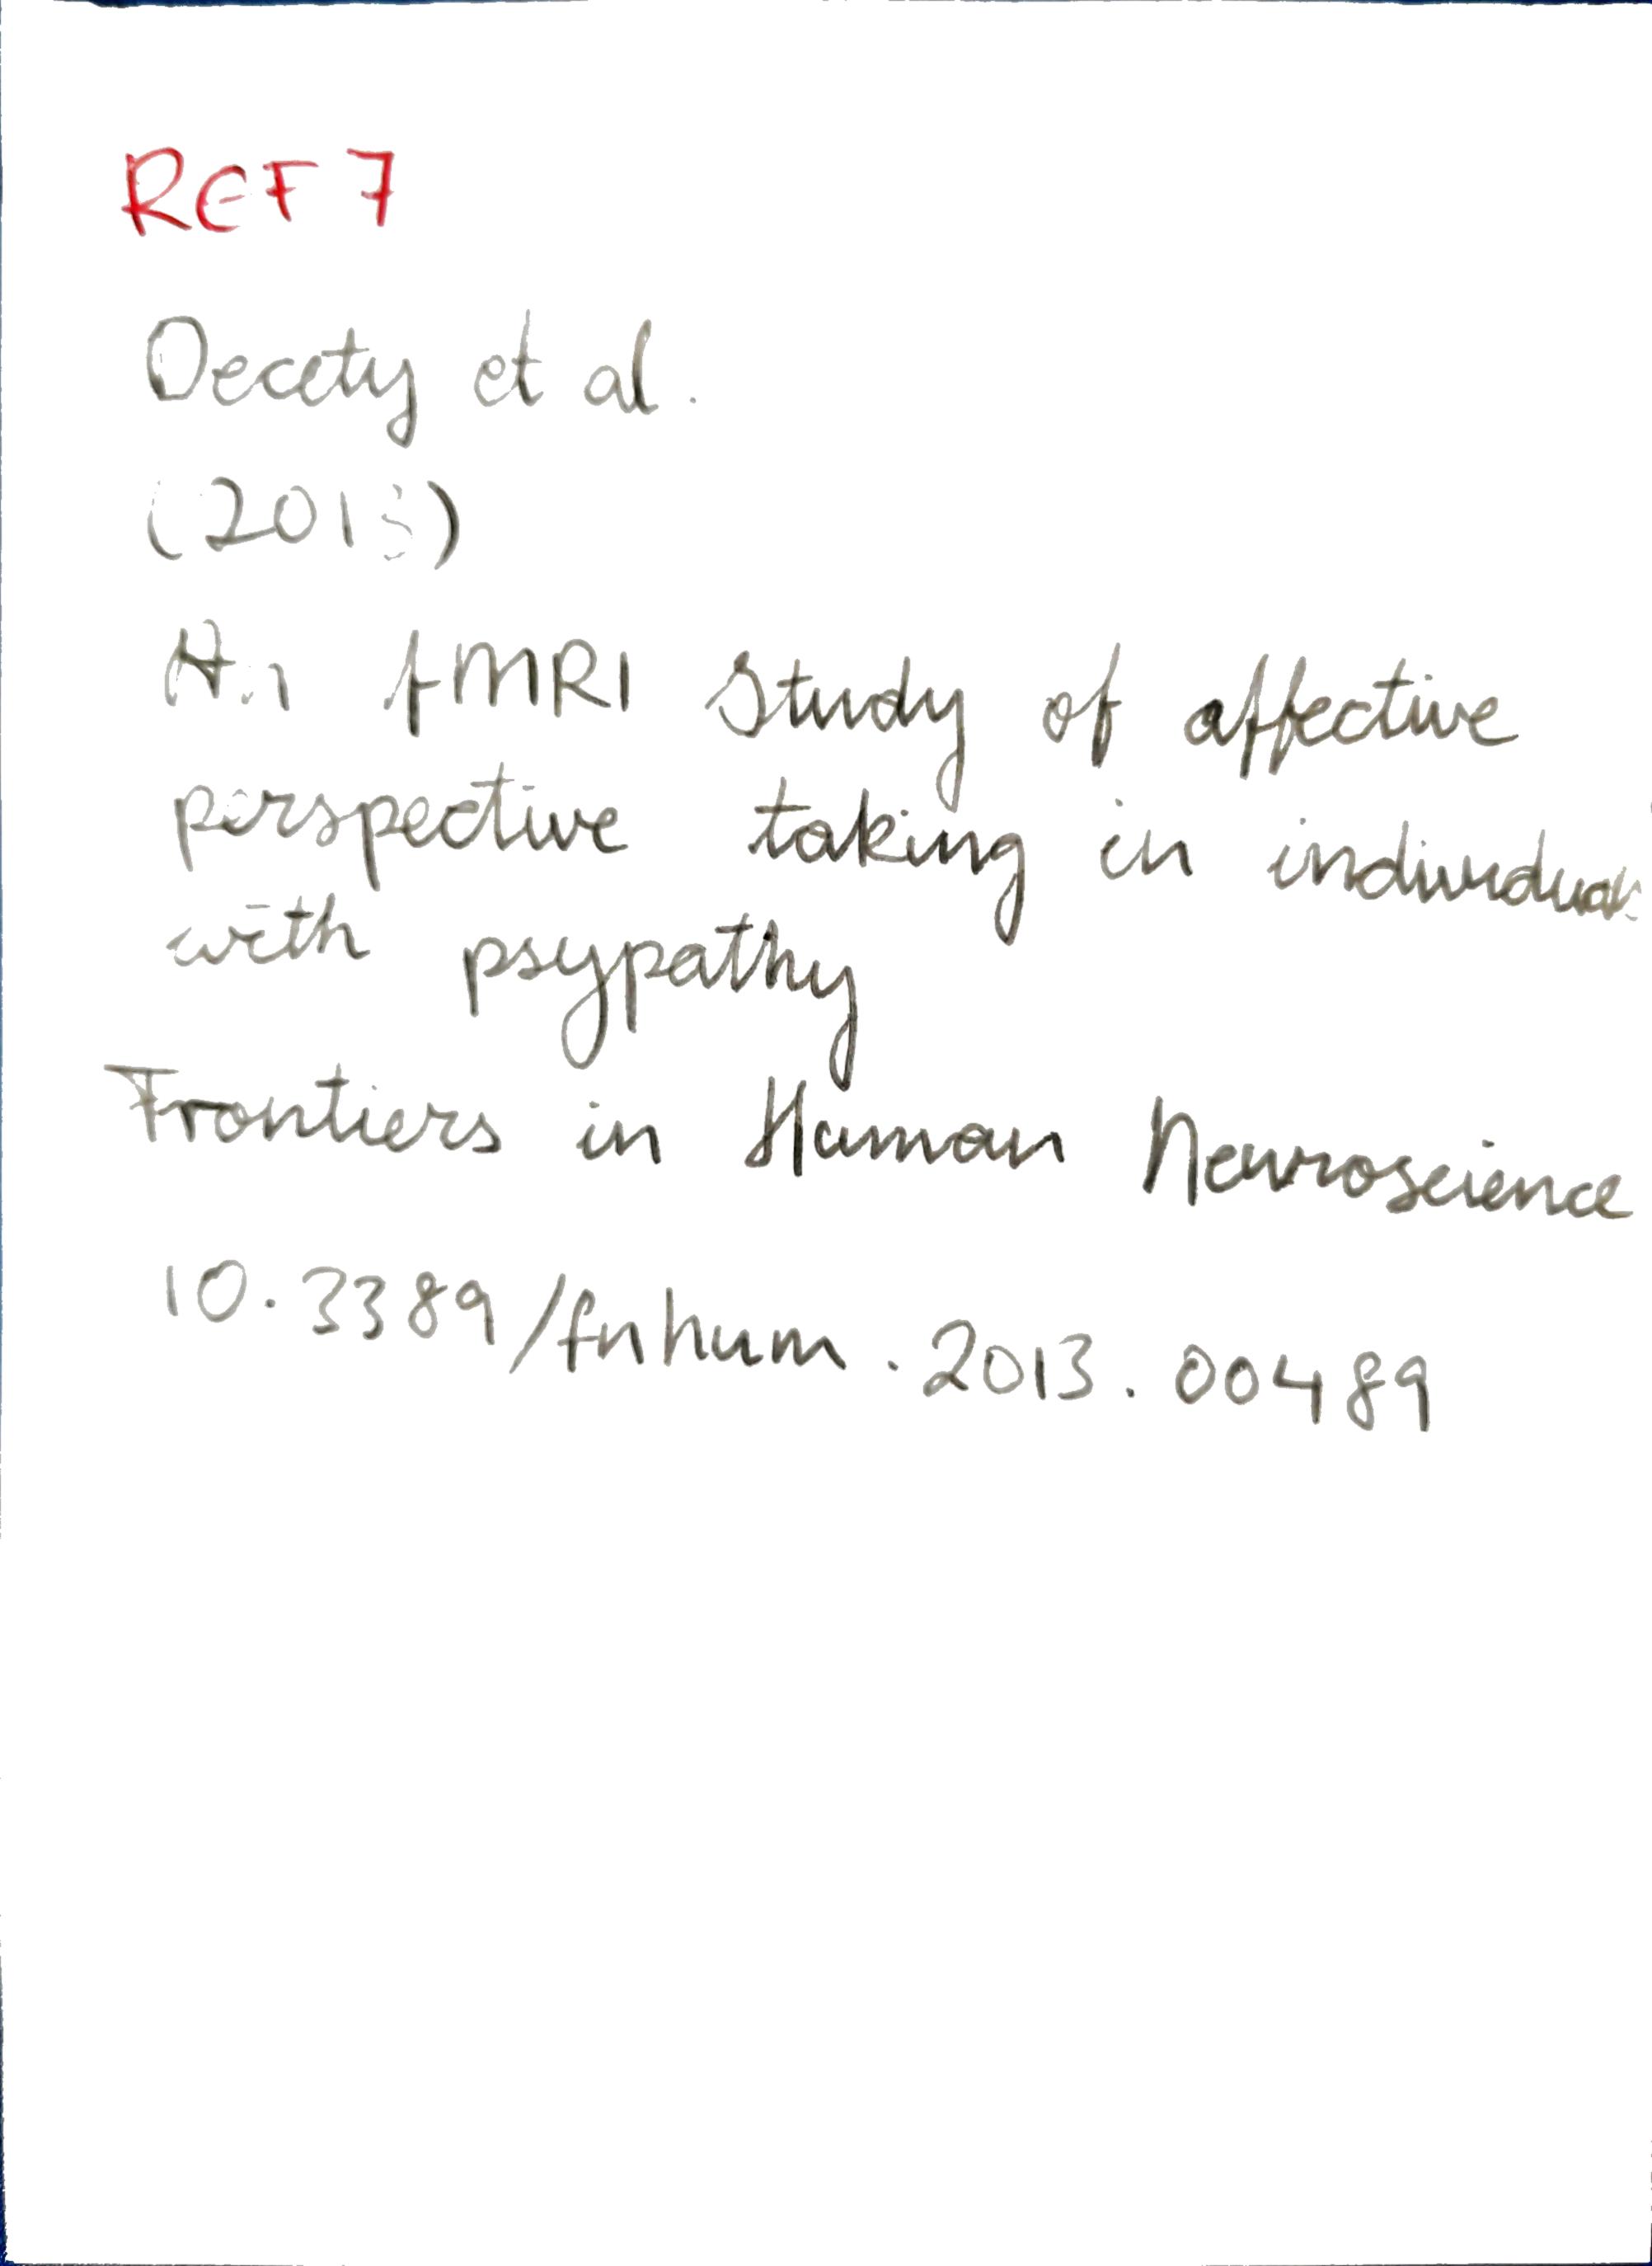 REF 7
Decety et al.
(2013)
An fMRI study of affective
perspective taking in individuals
with psypathy
Frontiers in Human Neuroscience
10.3389/fnhum.2013.00489